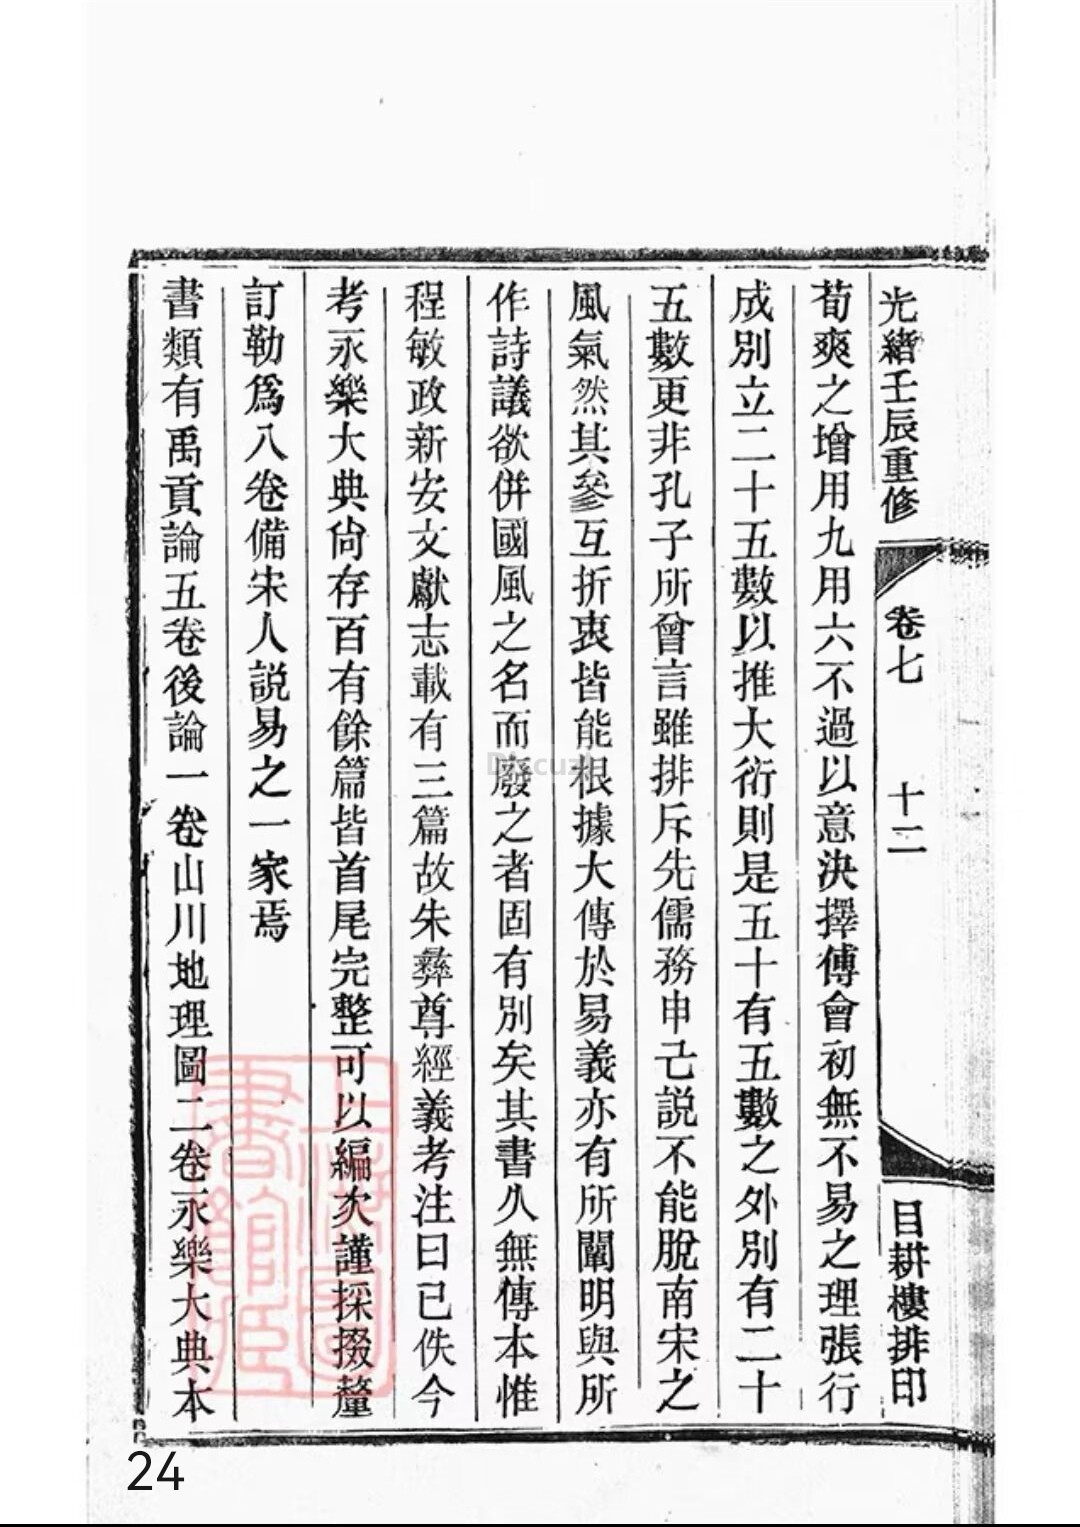 光緒壬辰重修 卷七 十二 目耕樓排印
荀爽之增用九用六不過以意決擇傅會初無不易之理張行
成別立二十五數以推大衍則是五十有五數之外別有二十
五數更非孔子所曾言雖排斥先儒務申己説不能脫南宋之
風氣然其參互折衷皆能根據大傳於易義亦有所闡明與所
作詩議欲併國風之名而廢之者固有別矣其書久無傳本惟
程敏政新安文獻志載有三篇故朱彝尊經義考注曰已佚今
考永樂大典尙存百有餘篇皆首尾完整可以編次謹採掇釐
訂勒爲八卷備宋人説易之一家焉
書類有禹貢論五卷後論一卷山川地理圖二卷永樂大典本
上海圖
書館藏
24